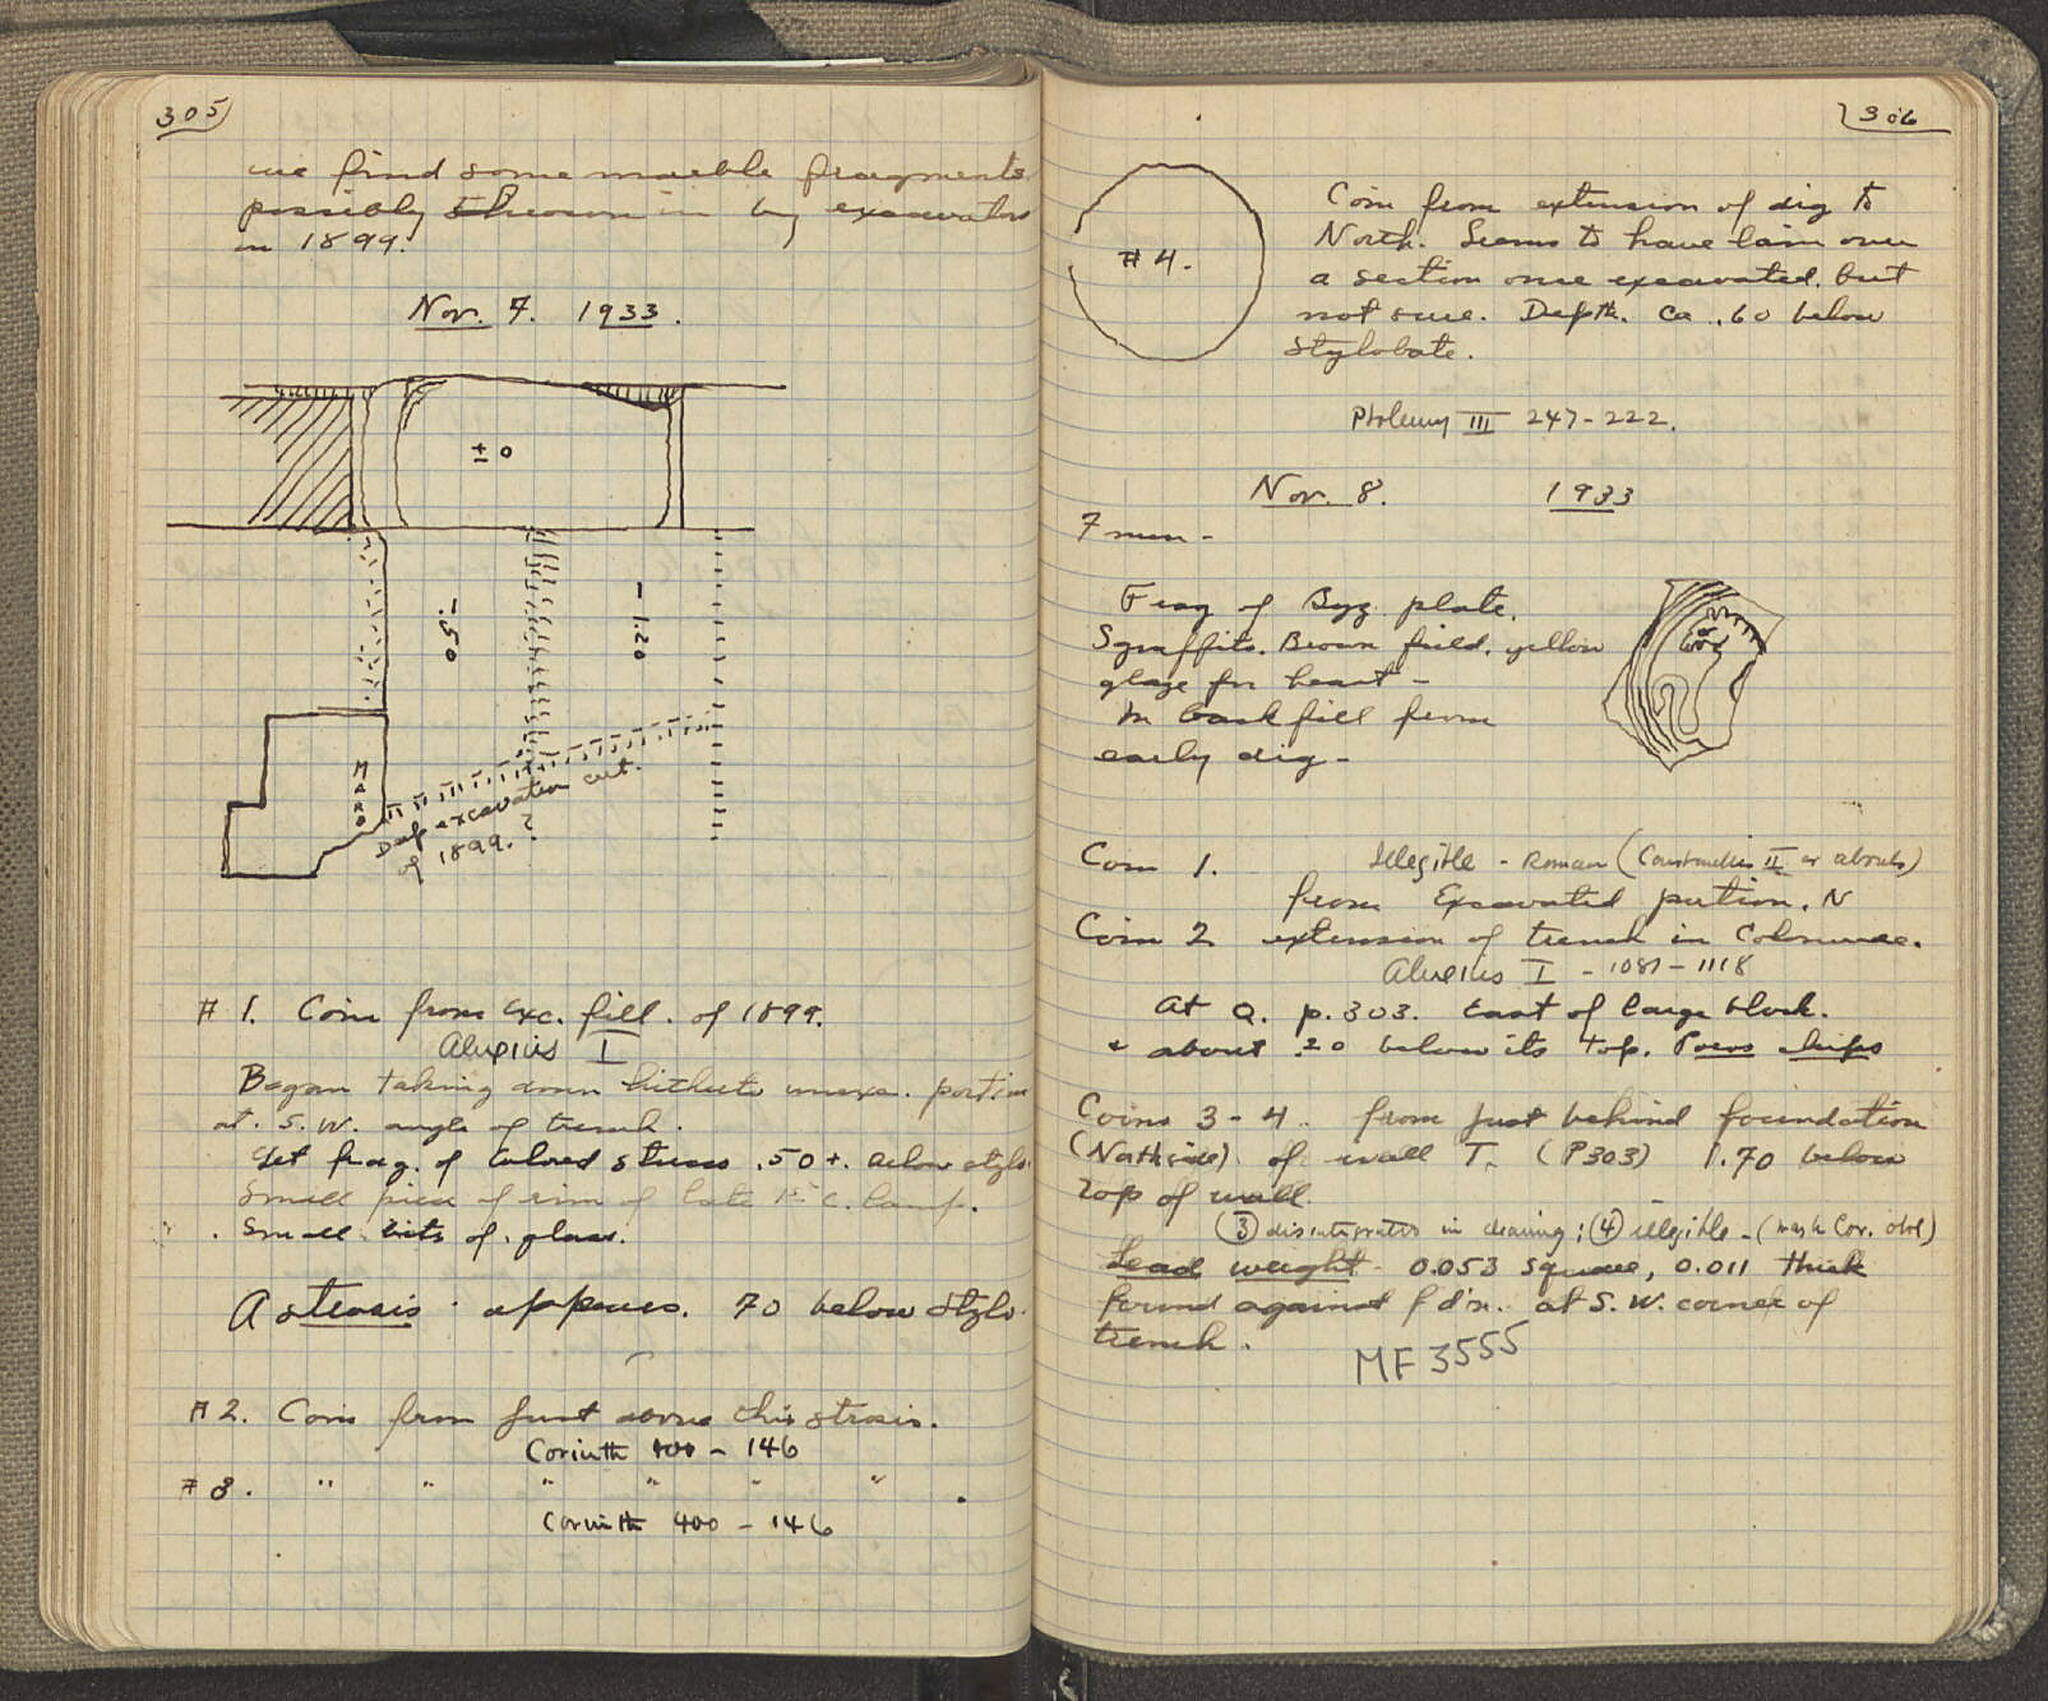 305
we find some marble fragments
possibly thrown in by excavators
in 1899.
Nov. 7. 1933.
± 0
-.50
-1.20
MARB
Deep excavation cut.
of 1899. ?
# 1. Coin from exc. fill. of 1899.
Alexius I
Began taking down hitherto unexc. portion
at. S. W. angle of trench.
Get frag. of colored stucco .50 +. below stylo.
Small piece of rim of late 1st c. lamp.
Small bits of glass.
A sterosis appears. 70 below stylo.
# 2. Coin from just above this strosis.
Corinth 400 - 146
# 3. " " " " " " .
Corinth 400 - 146
306
# 4.
Coin from extension of dig to
North. Seems to have lain over
a section once excavated. but
not sure. Depth. ca .60 below
Stylobate.
Ptolemy III 247-222.
Nov. 8. 1933
7 men -
Frag of Byz. plate.
Sgraffito. Brown field. yellow
glaze for beast -
In back fill from
early dig -
Coin 1. Illegible - Roman (Constantius II or abouts)
from Excavated portion. N
Coin 2 extension of trench in Colonnade.
Alexius I - 1081-1118
At Q. p. 303. East of large block.
+ about .20 below its top. Poros chips
Coins 3 - 4. from just behind foundation
(North side) of wall T. (P303) 1.70 below
top of wall.
(3) disintegrated in cleaning; (4) illegible - ( Cor. obol)
Lead weight - 0.053 square, 0.011 thick
found against fd'n. at S. W. corner of
trench.
MF 3555